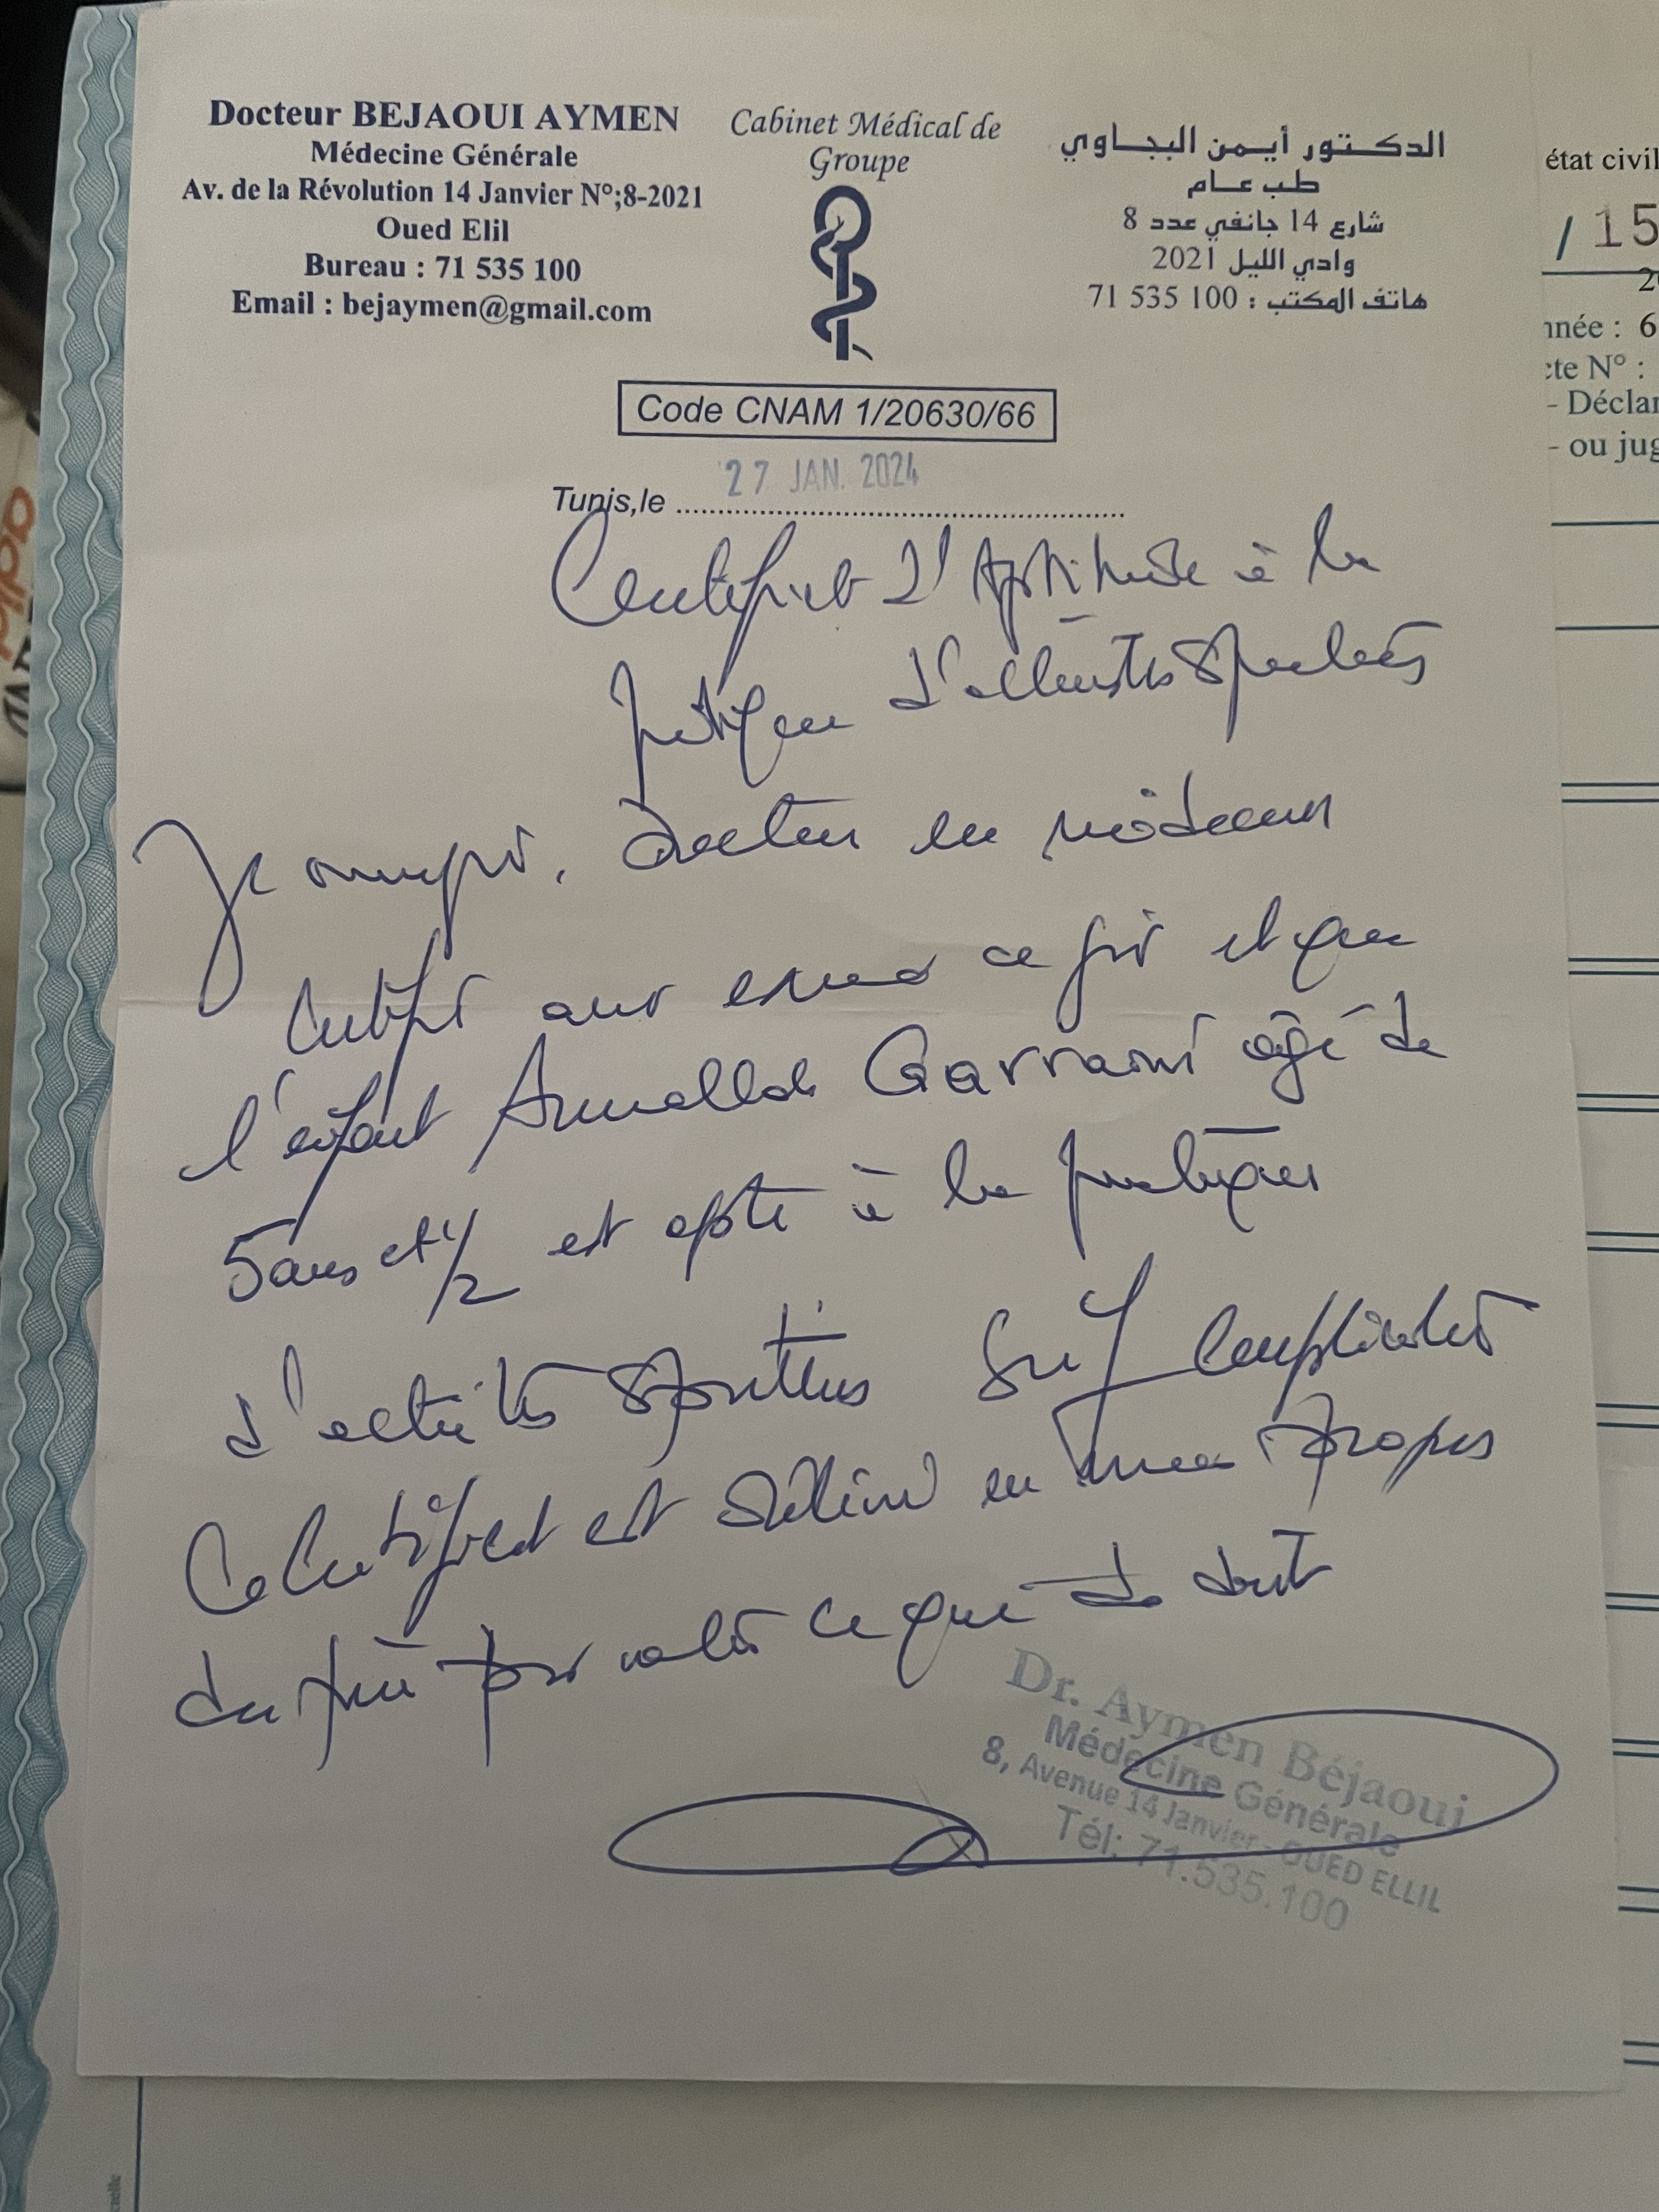 Docteur BEJAOUI AYMEN
Médecine Générale
Av. de la Révolution 14 Janvier N°;8-2021
Oued Elil
Bureau : 71 535 100
Email : bejaymen@gmail.com
Cabinet Médical de
Groupe
الدكتور أيمن البجاوي
طب عام
شارع 14 جانفي عدد 8
وادي الليل 2021
هاتف المكتب : 100 535 71
Code CNAM 1/20630/66
Tunis,le 27 JAN. 2024
Certificat d'Aptitude à la
pratique d'activités sportives
Je soussigné, Docteur en médecine
certifie avoir examiné ce jour et que
l'enfant Garraoui âgé de
5 ans et 1/2 est apte à la pratique
d'activités sportives sauf complications
Ce certificat est délivré en mains propres
du père pour valoir ce que de droit
Dr. Aymen Béjaoui
Médecine Générale
8, Avenue 14 Janvier - OUED ELLIL
Tél: 71.535.100
état civil
/ 15
nnée : 6
cte N° :
- Déclar
- ou jug